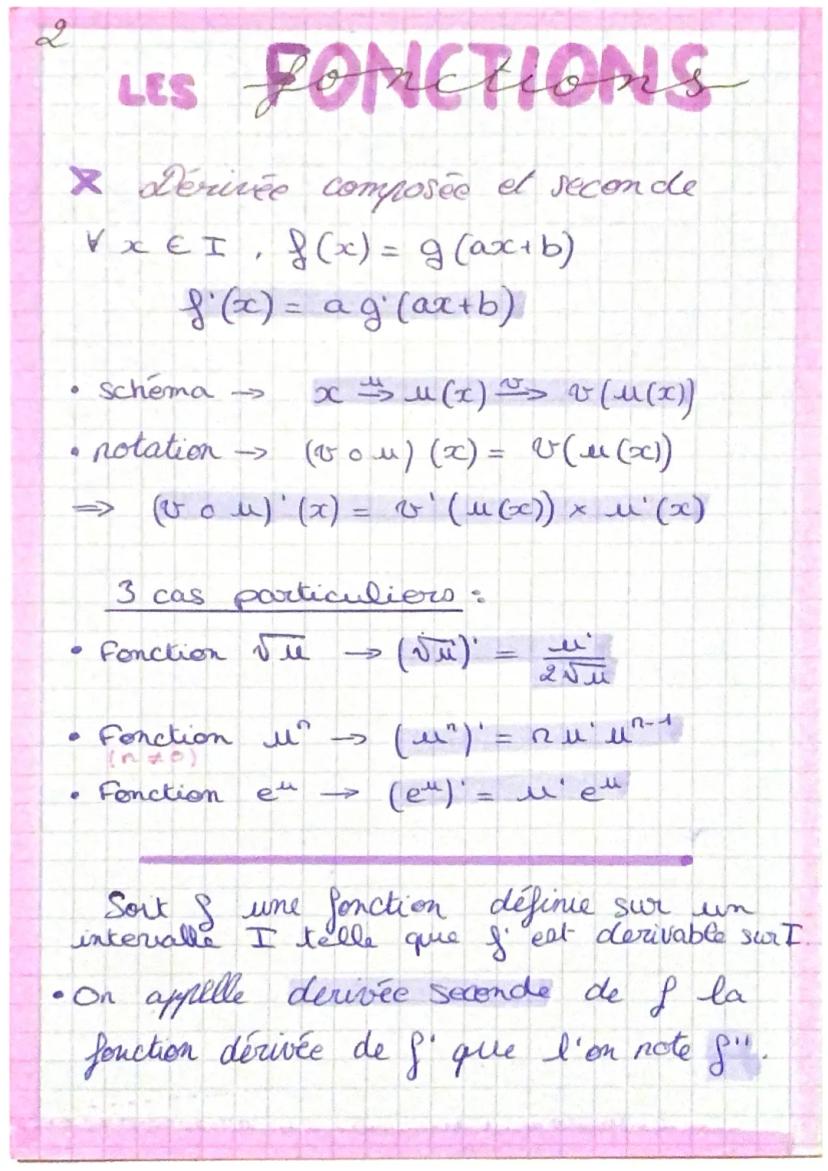 2
LES FONCTIONS
fonctions
x Dérivée composée et seconde
∀ x ∈ I , f(x) = g(ax+b)
f'(x) = a g'(ax+b)
• schéma → x →ᵘ u(x) →ᵛ v(u(x))
• notation → (v o u) (x) = v(u(x))
⇒ (v o u)'(x) = v'(u(x)) × u'(x)
3 cas particuliers :
• Fonction √u → (√u)' = u' / 2√u
• Fonction uⁿ → (uⁿ)' = n u' uⁿ⁻¹
(n ≠ 0)
• Fonction eᵘ → (eᵘ)' = u' eᵘ
Soit f une fonction définie sur un
intervalle I telle que f' est derivable sur I.
• On appelle derivée seconde de f la
fonction dérivée de f' que l'on note f''.